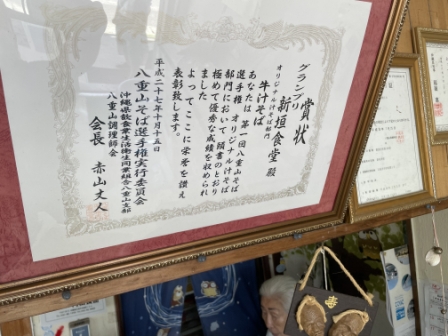 賞状
グランプリ
オリジナル汁そば部門
新垣食堂 殿
牛汁そば
あなたは 第一回八重山そば
選手権 オリジナル汁そば
部門において頭書のとおり
極めて優秀な成績を収められ
ました
よって ここに栄誉を讃え
表彰致します。
平成二十七年十月十五日
八重山そば選手権実行委員会
沖縄県飲食業生活衛生同業組合八重山支部
八重山調理師会
会長 赤山丈人